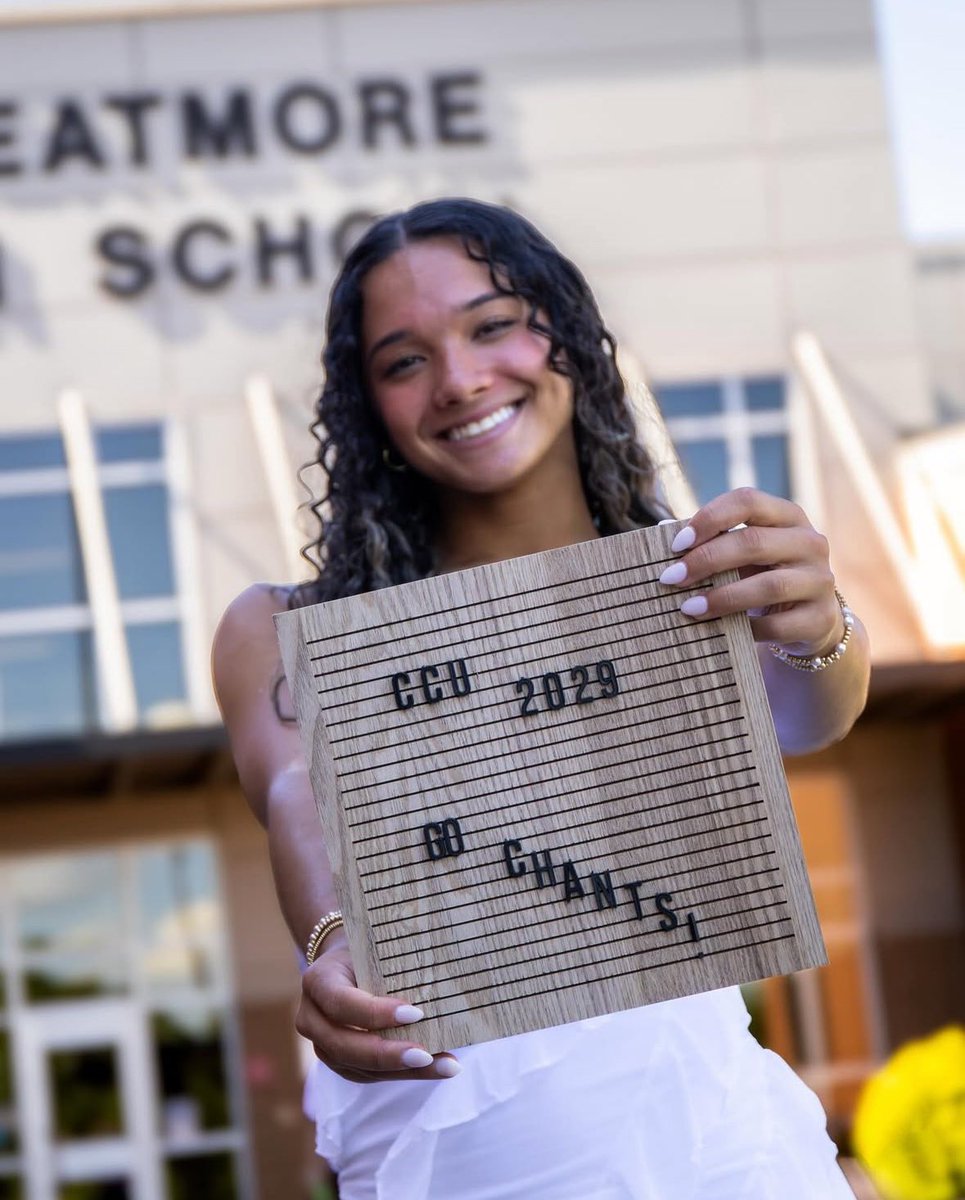 EATMORE
SCHOOL
CCU 2029
GO CHANTS!